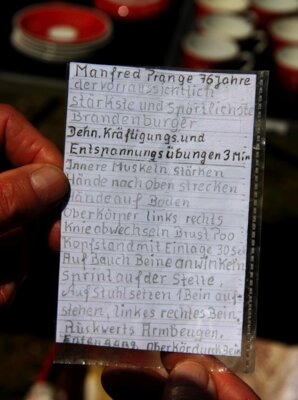 Manfred Prange 76 Jahre
der vorraussichtlich
stärkste und Sportlichste
Brandenburger
Dehn, Kräftigungs, und
Entspannungsübungen 3 Min
Innere Muskeln stärken
Hände nach oben strecken
Hände auf Boden
Oberkörper links rechts
Knie abwechseln Brust Poo
Kopfstand mit Einlage 30 Sek
Auf Bauch Beine anwinkeln
Sprint auf der Stelle,
Auf Stuhl setzen 1 Bein auf-
stehen, linkes rechtes Bein,
Rückwerts Armbeugen,
Entengang, oberkör durch Bein